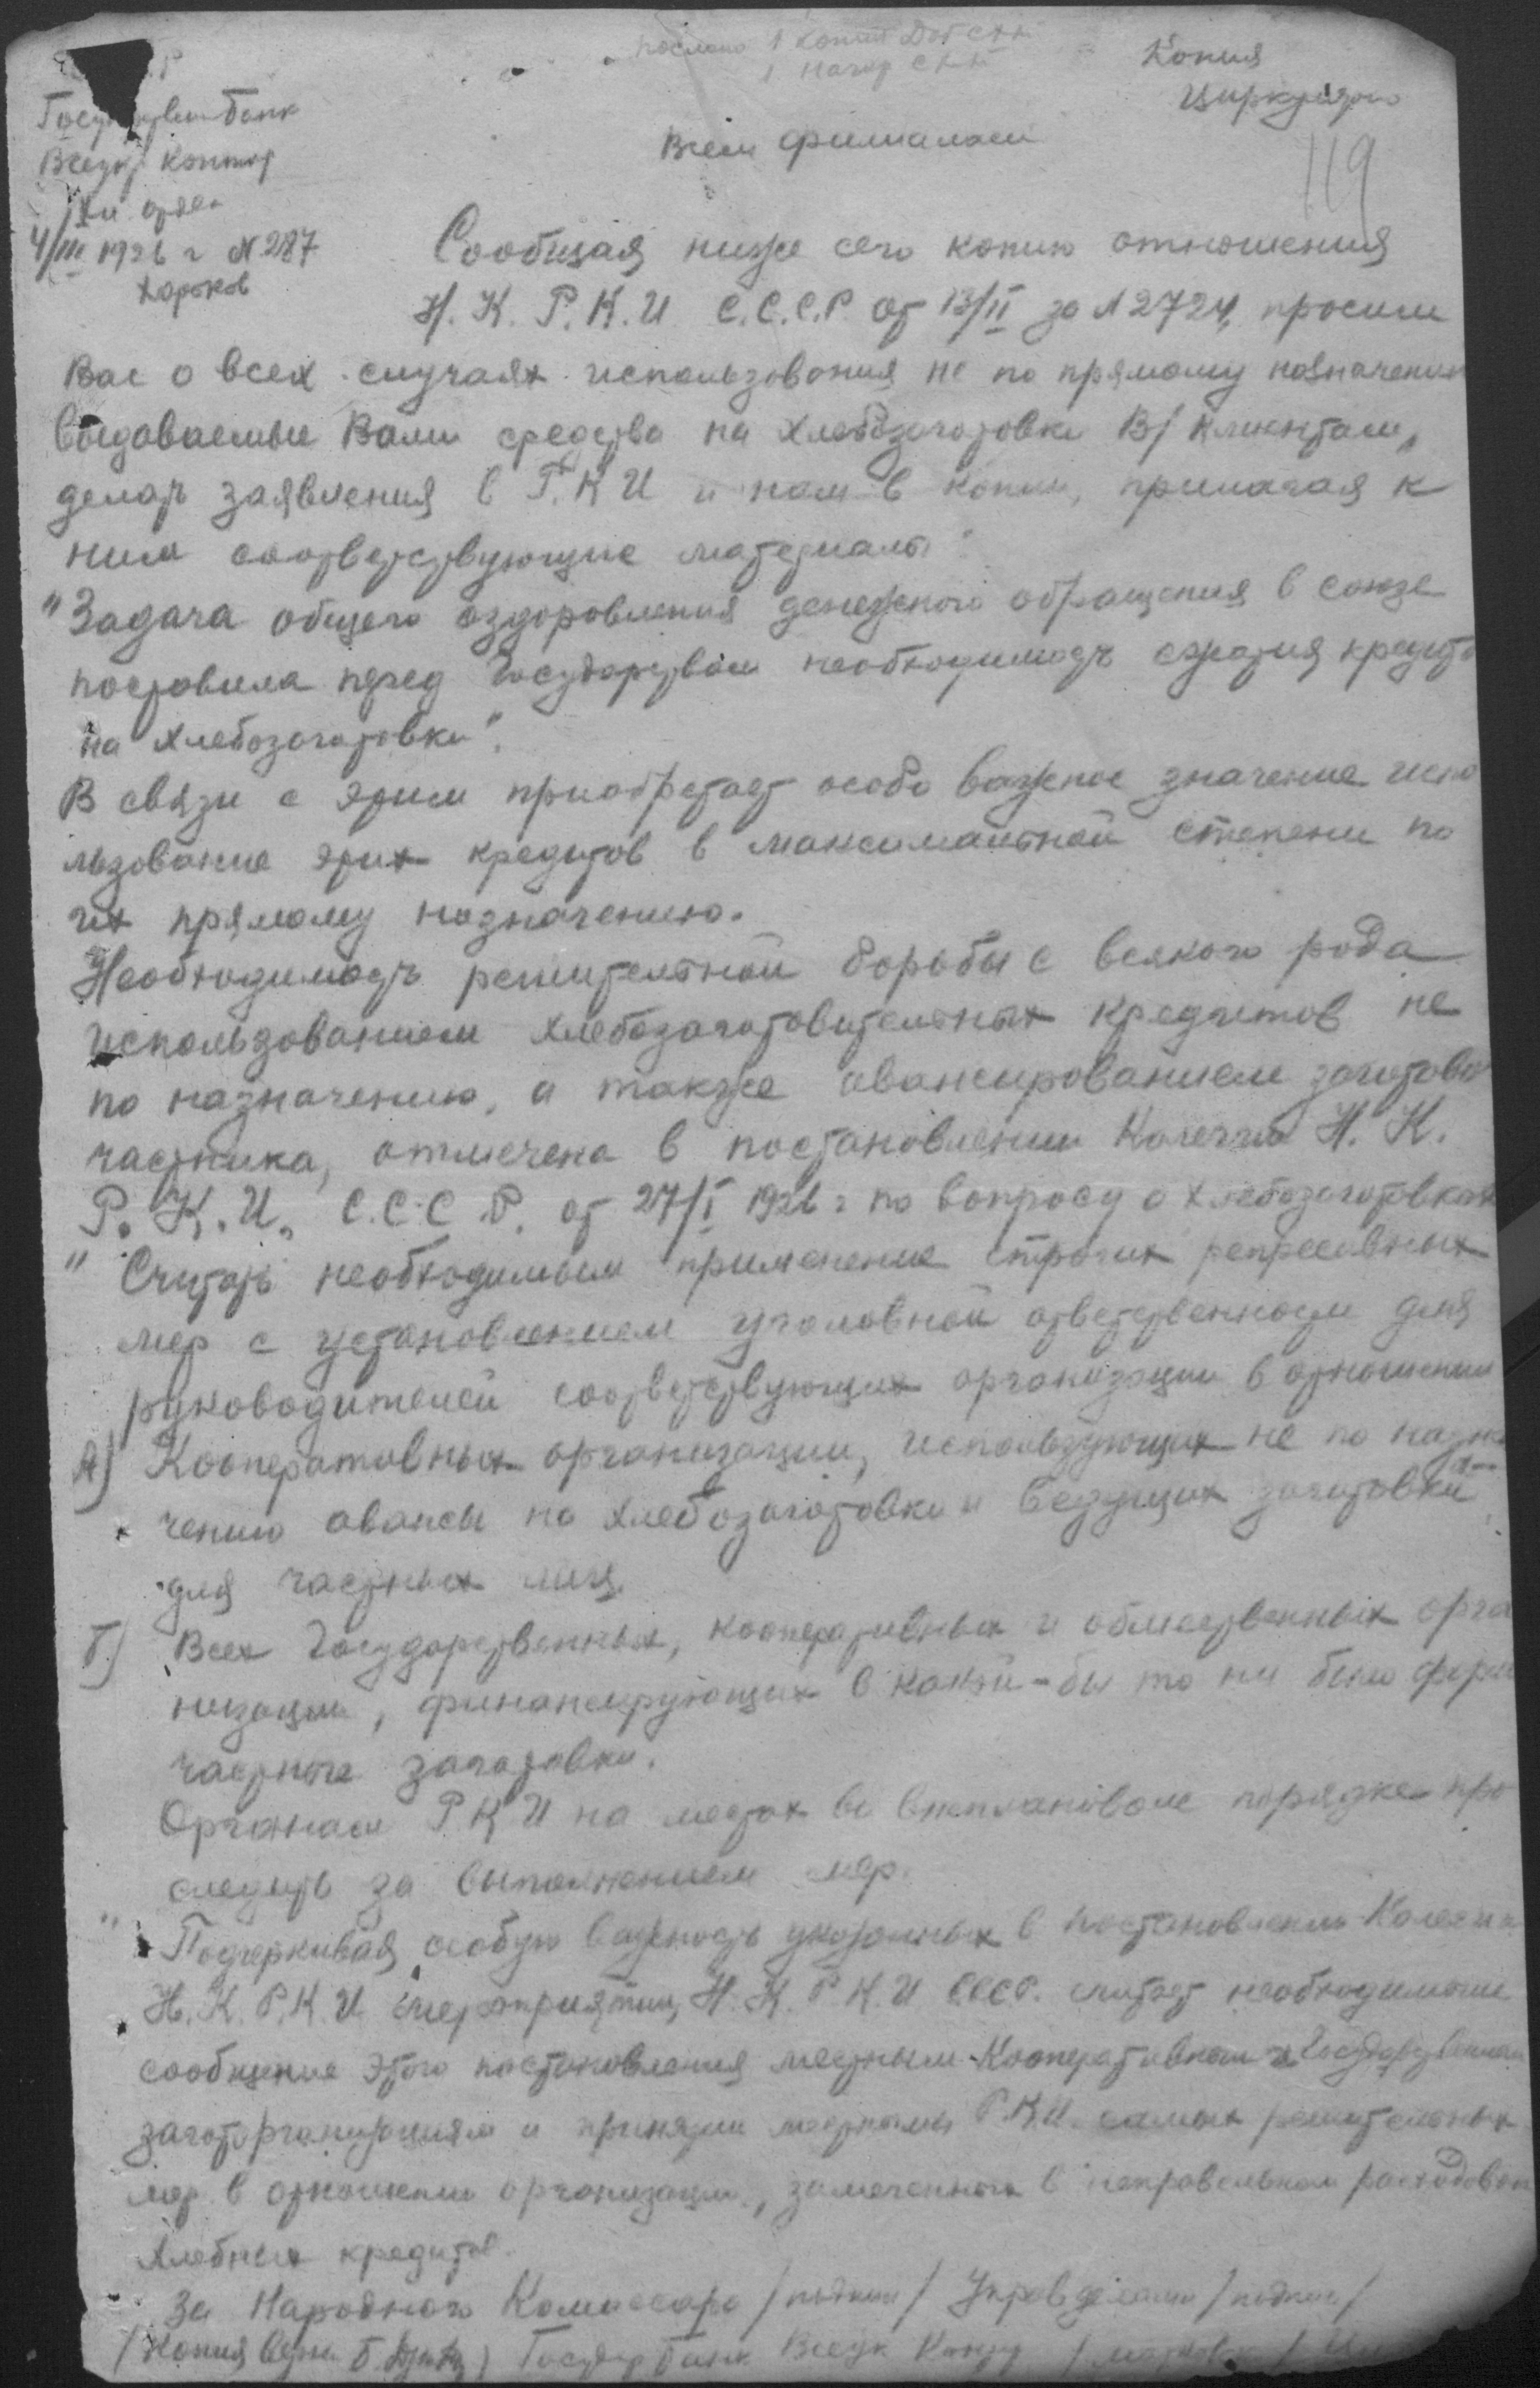 послано 1 копия
Копия
Циркулярно
Госу
банк
Всеукр Контор
4/III 1926 г N 287
Харьков
119
Всем филиалам
Сообщая ниже сего копию отношения
Н. К. Р. К. И. С.С.С.Р. от 13/II за N 2724, просим
Вас о всех случаях использования не по прямому назначению
выдаваемые Вами средства на хлебозаготовки В/ клиентам,
делать заявления в Р.К И и нам в копии, прилагая к
ним соответствующие материалы:
"Задача общего оздоровления денежного обращения в союзе
поставила перед Государством необходимость сжатия кредита
на хлебозаготовки".
В связи с этим приобретает особо важное значение испо
льзование этих кредитов в максимальной степени по
их прямому назначению.
Необходимость решительной борьбы с всякого рода
использованием хлебозаготовительных кредитов не
по назначению, а также авансированием заготовок
частника, отмечена в постановлении Н. К.
Р. К. И. С.С.С.Р. от 27/I 1926 г по вопросу о хлебозаготовках
" Считать необходимым применение строгих репрессивных
мер с установлением уголовной ответственности для
руководителей соответствующих организации в отношении
А) Кооперативных организации, использующих не по назна
чению авансы на хлебозаготовки и ведущих заготовки
для частных лиц.
Б) Всех Государственных, кооперативных и общественных орга
низации, финансирующих в какой-бы то ни было форме
частные заготовки.
Органам Р К И на местах во внеплановом порядке про
следить за выполнением мер.
" Подчеркивая особую важность указанных в постановлении
Н. К. Р. К. И мероприятии, Н. К. Р. К. И СССР. считает необходимым
сообщение этого постановления местным Кооперативным и Государственным
заготорганизациям и принятии местными Р.К.И. самых решительных
мер в отношении организации, замеченных в неправельном расходован
хлебных кредитов.
За Народного Комиссара /подпись/ Управделами /подпись/
/Копия верна
Банк Всеукр